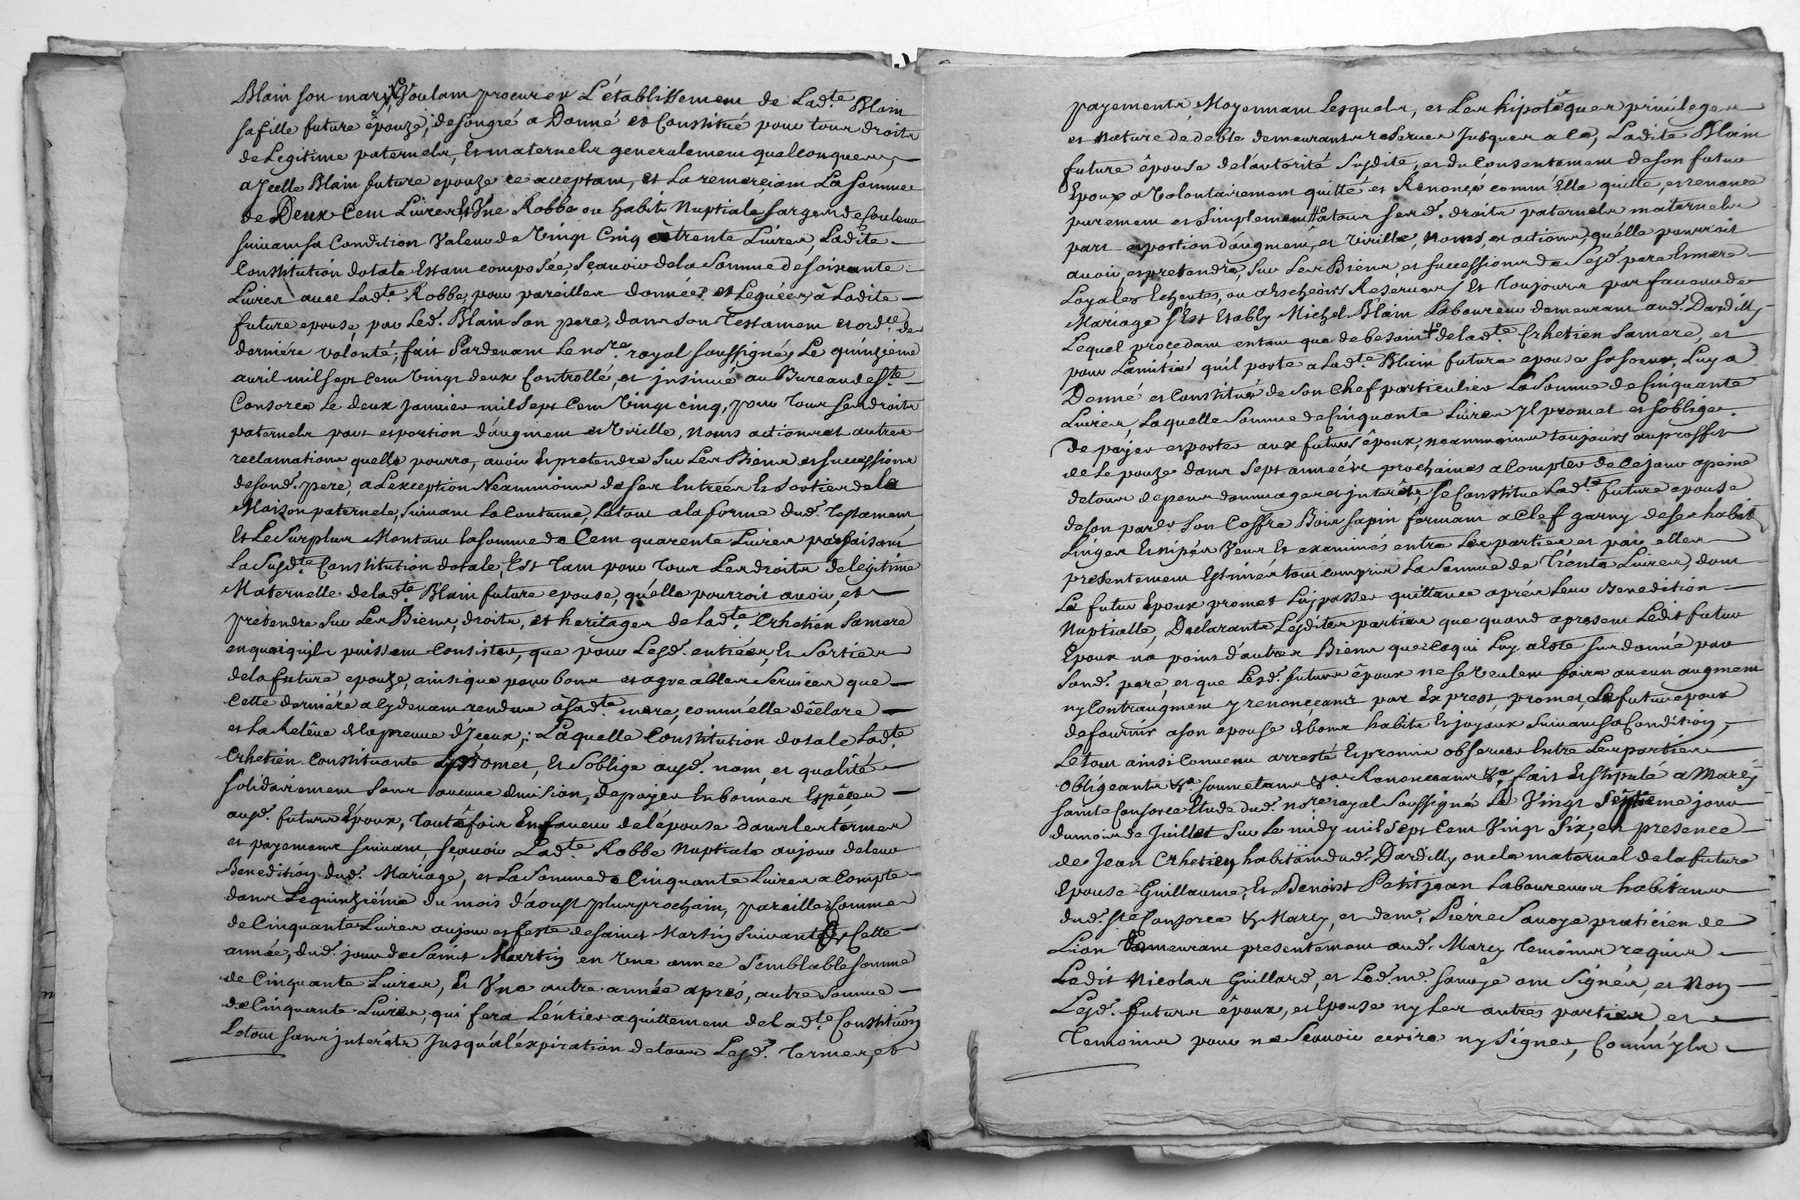 Blain son mary, Voulant procurer L'établissement de Lad.te Blain
sa fille future épouze, de son gré a Donné et Constitué pour tous droits
de Legitime paternels, Et maternels generalement quelconques,
a Jcelle Blain future epouze ce acceptant, et La remerciant La somme
de Deux Cent Livres Et Vne Robbe ou habit Nuptiale sarge de Couleur
suivant sa Condition Valeur de Vingt Cinq à trente Livres, Ladite
Constitution dotale Estant composée, Sçavoir de la Somme de soixante
Livres avec Lad.te Robbe, pour pareilles données et Leguées à Ladite
future epouse, par Led. Blain Son pere, dans son Testament et ord.ce de
derniére volonté, fait Pardevant Le no.re royal soussigné, Le quinzieme
avril mil sept Cent Vingt deux Controllé, et jnsinué au Bureau de S.te
Consorce Le deux Janvier mil Sept Cent Vingt cinq, pour tous ses droits
paternels part et portion d'augment et Virille, Noms actions et autres
reclamations quelle pourra, avoir Et pretendre Sur Les Biens et Successions
de sond. pere, a L'exception Neammoins de ses Entrées Et Sorties de la
Maison paternele, Suivant La Coutume, Le tout a la forme dud. Testament,
Et Le Surplus Montant La somme de Cent quarente Livres parfaisant
La Susd.te Constitution dotale, Est Tant pour Tous Les droits de legitime
Maternelle de lad.te Blain future epouse, qu'elle pourroit avoir, et
pretendre Sur Les Biens, droits, et heritages de lad.te Crhetien Sa mere
en quoi qu'jls puissent Consister, que pour Lesd. entrées, Et Sorties
de la future epouze, ainsi que pour bons et agreables Services que
Cette derniére a Cy devant rendus à Sad.te mere, comm'elle déclare
et La Reléve de la preuve d'Jceux; Laquelle Constitution dotale Lad.te
Crhetien Constituante promet, Et S'oblige ausd. nom, et qualité
solidairement Sans aucune division, de payer En bonnes Espéces
ausd. futurs Epoux, Toutéfois En faveur de l'épouse dans les termes
et payements suivant sçavoir Lad.te Robbe Nuptiale au jour de leur
Benedition dud. Mariage, et La Somme de Cinquante Livres a Compte
dans Le quinziéme du mois d'aoust plus prochain, pareille Somme
de Cinquante Livres au jour et feste de Saint Martin Suivant de Cette
année, dud. jour de Saint Martin en Vne année Semblable somme
de Cinquante Livres, Et Vne autre année aprés, autre Somme
de Cinquante Livres, qui fera L'entier aquittement de lad.te Constitution
Le tout sans jnteréts Jusqu'à l'expiration de tous Lesd. Termes, et
payements, Moyennant Lesquels, et Les hipoteques privileges
et Nature de debte demeurants reservés Jusques a ce, Ladite Blain
future épouse de l'autorité Susdite, et du Consentement de son futur
Epoux a Volontairement quitté et Rénoncé comm'Ella quitte, et renonce
purement et Simplement a tous sesd. droits paternels maternels
part et portion d'augment, et Virille, Noms, et actions, qu'élle pourroit
avoir, et pretendre, Sur Les Biens, et successions de Sesd. pere Et mere
Loyales Echeutes, ou a Escheoirs Reservées, Et Toujours par faveur de
Mariage S'est Etably Michel Blain Laboureur demeurant aud. Dardilly
Lequel procedant entant que de besoin de Lad.te Crhetien sa mere, et
pour L'amitié qu'il porte a Lad.te Blain future epouse sa soeur, Luy a
Donné et Constitué de Son Chef particulier La Somme de Cinquante
Livres, Laquelle Somme de Cinquante Livres Jl promet et s'oblige
De payer et porter aux futurs époux, neammoins toujours au proffit
de L'epouze dans Sept années prochaines a Compter de Ce jour a peine
de tous depens dommages et jnteréts, Se Constitue Lad.te future epouse
de son par Son Coffre Bois sapin fermant a Clef garny de ses habits
Linges Et nipes Veus Et examinés entre Les parties et par elles
presentement Estimés tout compris La Somme de Trénte Livres, dont
Le futur Epoux promet Luj passer quittance aprés Leur Benedition
Nuptialle, Declarants Lesdites parties que quand a present Ledit futur
Epoux na point d'autres Biens que Ceque Luy a esté Sus donné par
Sond. pere, et que Lesd. futurs époux ne se Veulent faire aucun augment
ny Contraugment y renonçants par Exprest, promet Le futur epoux
de fournir a son epouse de bons habits Et joyaux Suivant sa Condition,
Le tout ainsi Convenu arresté Et promis observer Entre Les parties
Obligeants &.a soumetans &.a Renonceants &.a fait Et Stipulé a Marcy
sainte Consorce Etude dud. no.re royal Soussigné Le Vingt Septieme jour
du mois de Juillet Sur Le midy mil Sept Cent Vingt Six, en presence
de Jean Crhetien, habitant dud. Dardilly oncle maternel de la future
Epouse Guillaume, Et Benoist Petitjean Laboureurs habitans
dud. S.te Consorce & Marcy, et de m.e Pierre Savoye praticien de
Lion demeurant presentement aud. Marcy Temoins requis
Ledit Nicolas Guillard, et Led. m.e Savoye ont Signés, et Non
Lesd. futurs époux, et Epouse ny Les autres parties, et
Temoins pour ne Scavoir ecrire ny Signer, Comm'yls